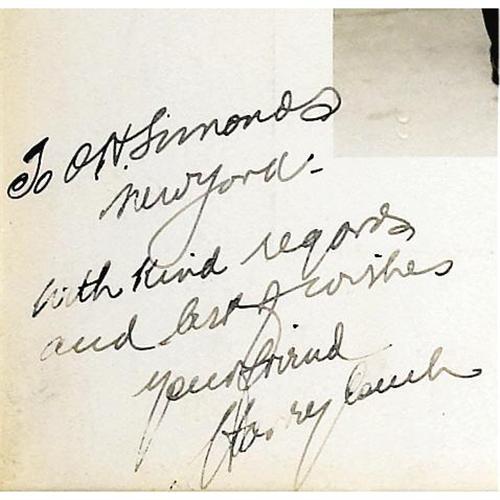 To O.H. Simonds
New York -
With kind regards
and best of wishes
your friend
Harry